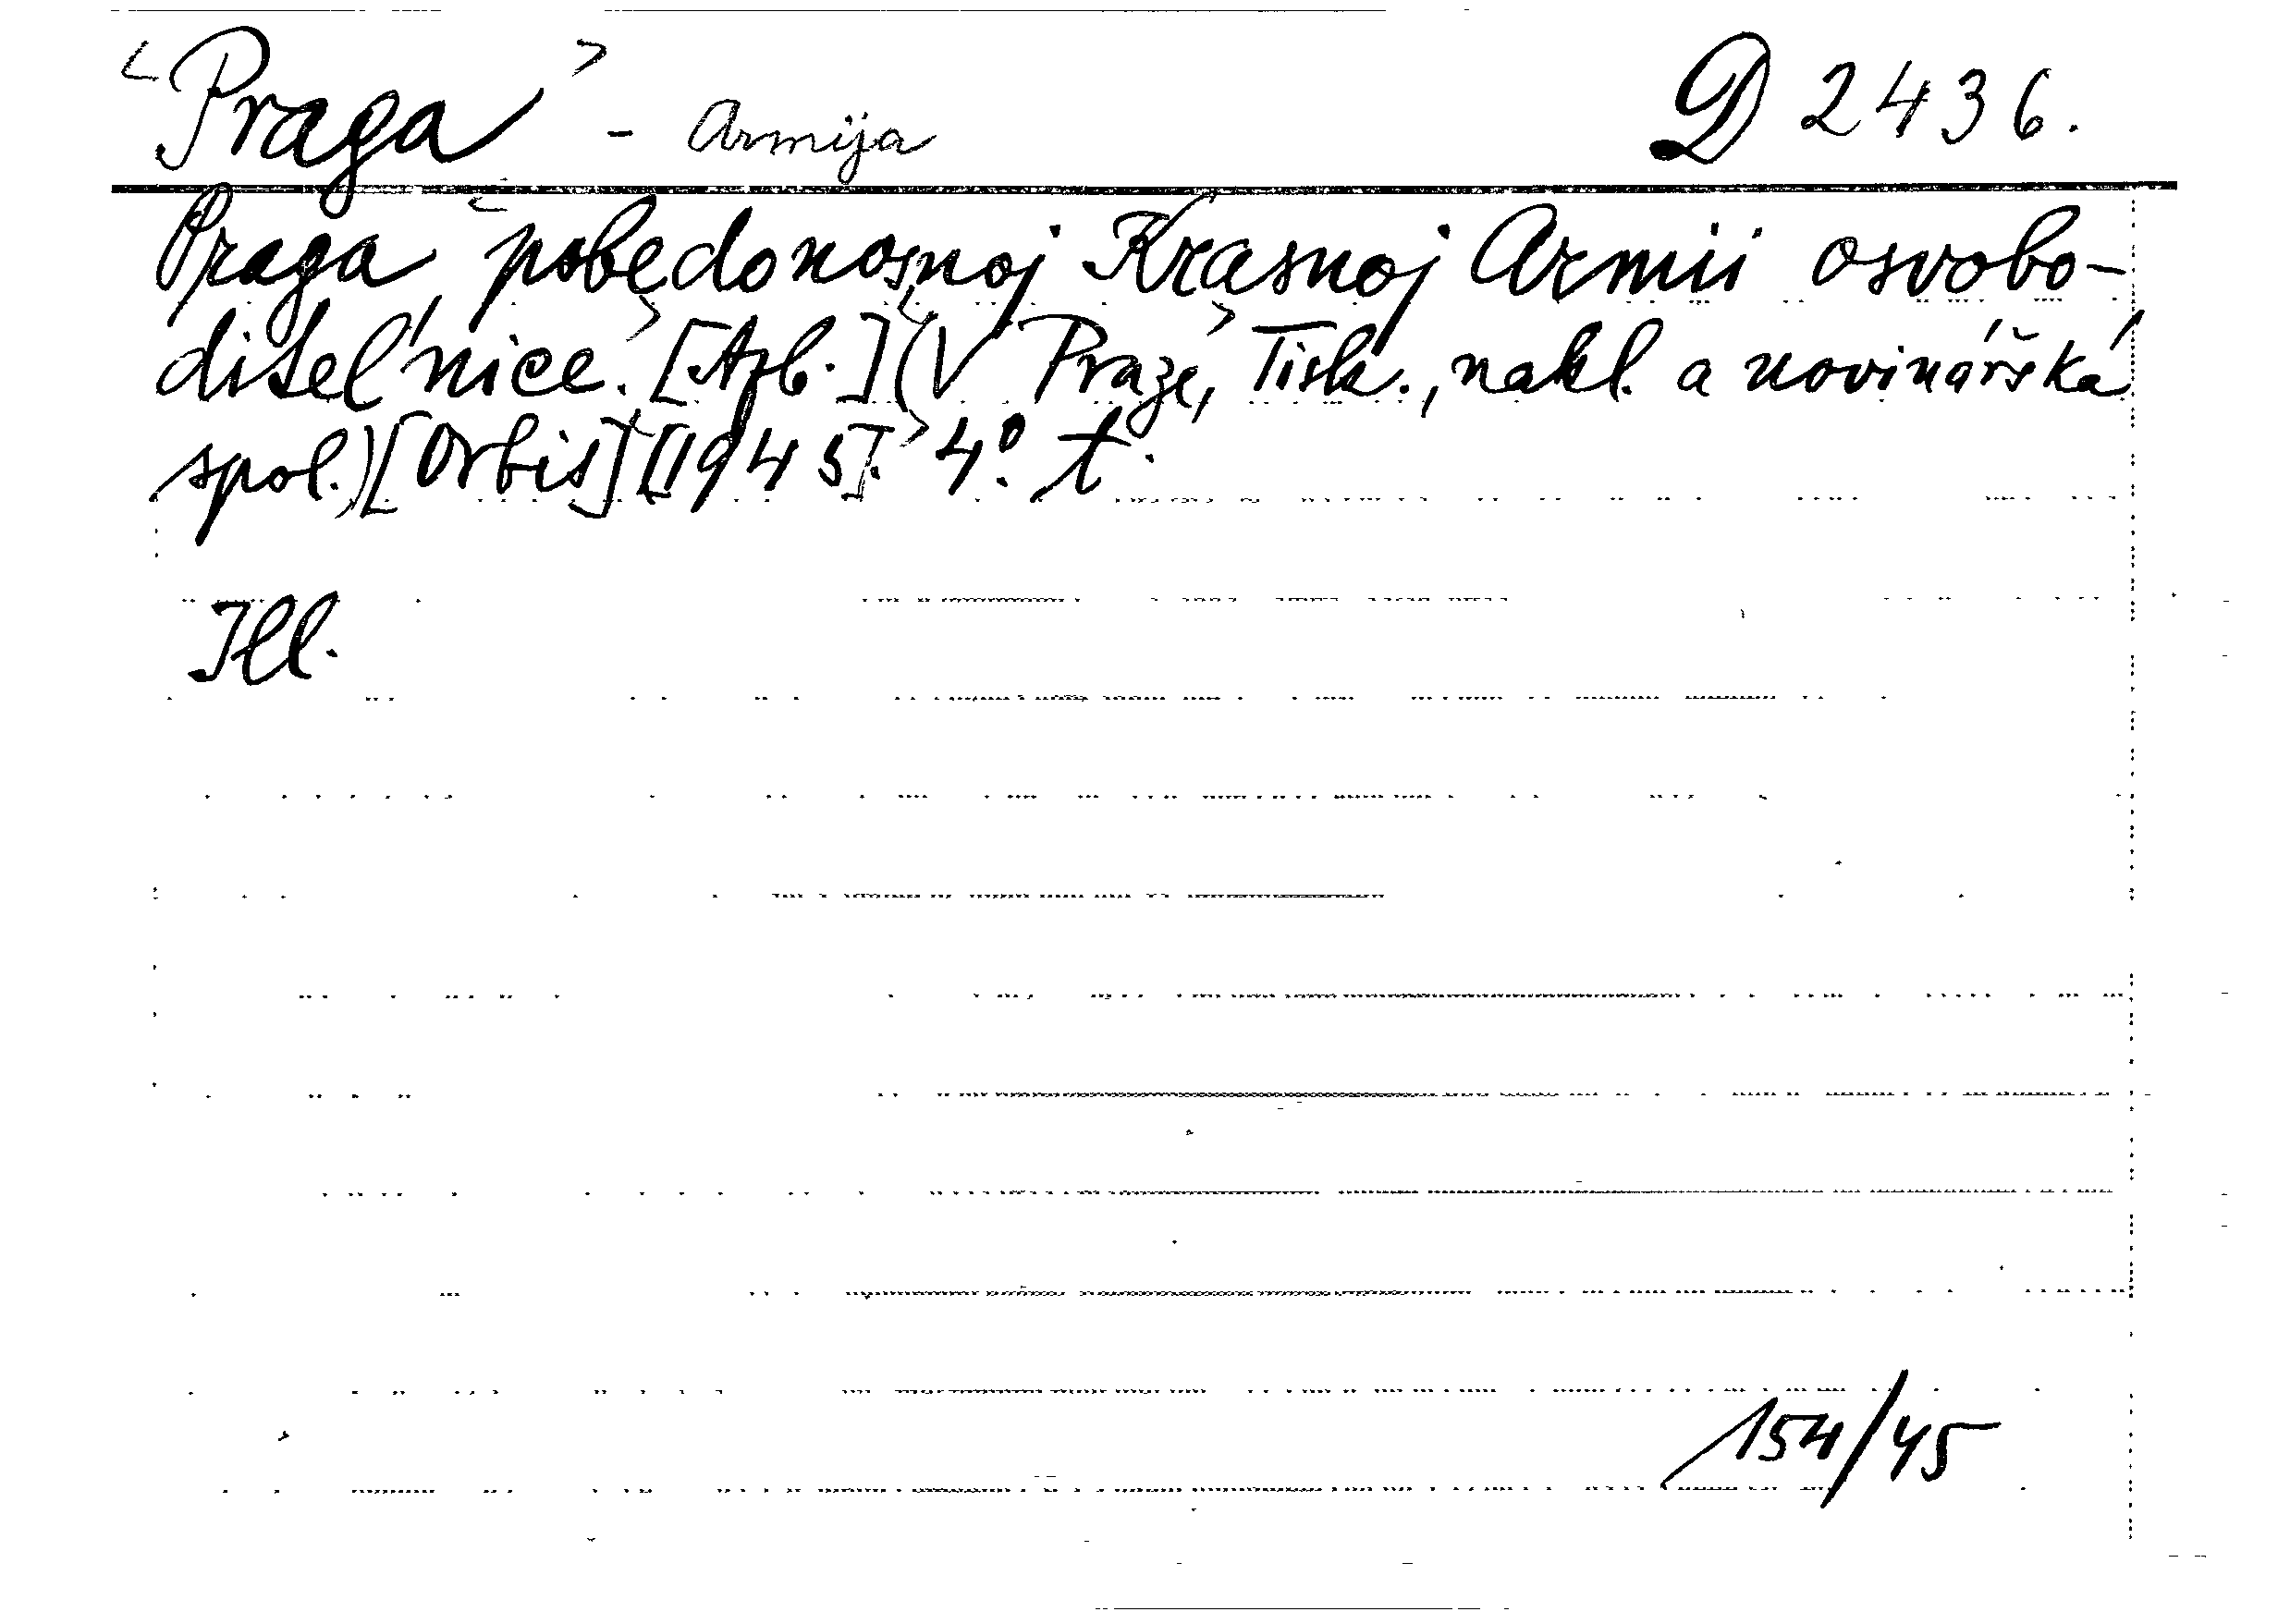 <Praga> - Armija D 2436.
Praga pobedonosnoj Krasnoj Armii osvobo-
ditel'nice. [Azb.] (V Praze, Tisk., nakl. a novinářská
spol.) [Orbis] [1945]. 4° t.
Ill.
154/45